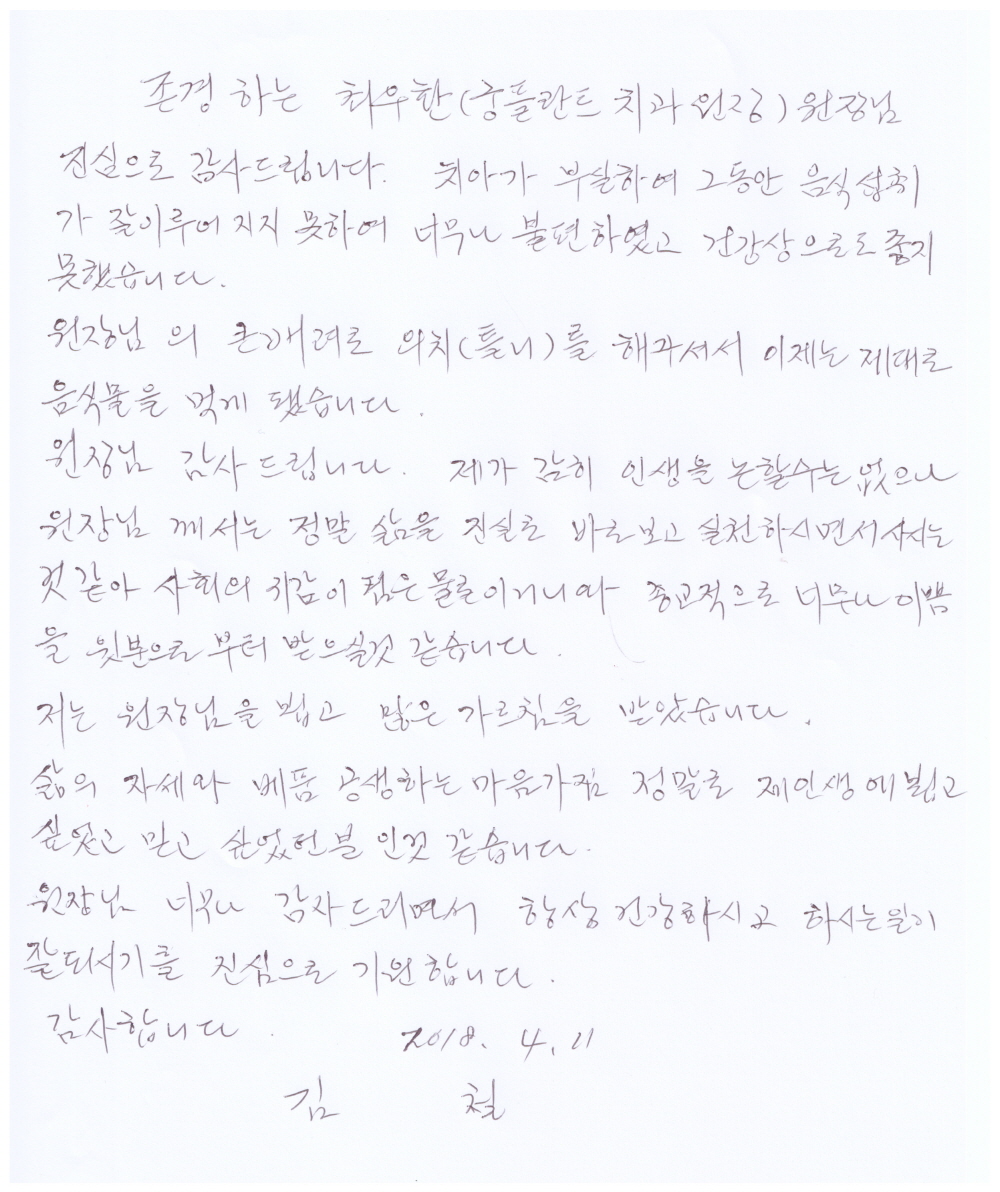 존경 하는 최우환(굿플란트 치과 원장) 원장님
진심으로 감사드립니다. 치아가 부실하여 그동안 음식 섭취
가 잘이루어 지지 못하여 너무나 불편하였고 건강상으로도 좋지
못했습니다.
원장님 의 큰배려로 의치(틀니)를 해주셔서 이제는 제대로
음식물을 먹게 됐습니다.
원장님 감사 드립니다. 제가 감히 인생을 논할수는 없으나
원장님 께서는 정말 삶을 진실로 바로보고 실천하시면서 사시는
것 같아 사회의 귀감이 됨은 물론이거니와 종교적으로 너무나 이쁨
을 윗분으로 부터 받으실것 같습니다.
저는 원장님을 뵙고 많은 가르침을 받았습니다.
삶의 자세와 베품 공생하는 마음가짐 정말로 제인생에 뵙고
싶었고 믿고 싶었던분 인것 같습니다.
원장님 너무나 감사드리면서 항상 건강하시고 하시는일이
잘되시기를 진심으로 기원합니다.
감사합니다. 2018. 4. 11
김 철